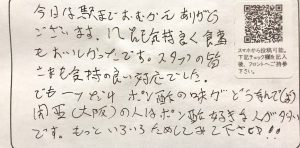 今日は駅までおむかえありがとう
ございます。
も気持良く食事
をおいしかったです。スタッフの皆
さまも気持の良い対応でした。
でも一つだけ ポン酢の味が どうも
関西(大阪)の人はポン酢 好きな人が多い
です。もっといろいろためしてみて下さい!!
スマホから投稿可能。
下記チェック欄を記入
後、フロントへご持参
下さい。